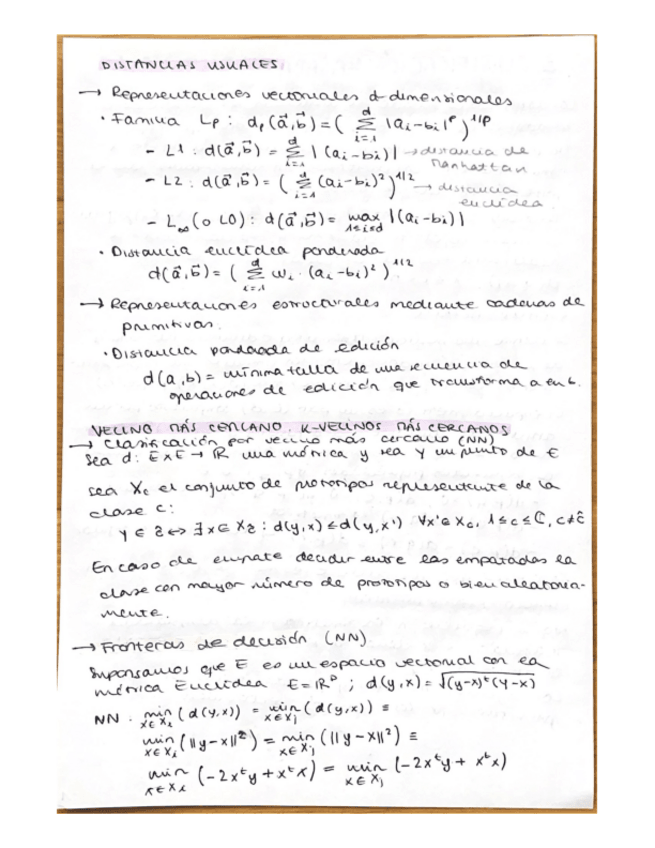 DISTANCIAS USUALES
→ Representaciones vectoriales d-dimensionales
· Familia Lp : dₚ(a⃗,b⃗) = ( Σᵢ₌₁ᵈ |aᵢ-bᵢ|ᵖ )^1/p
- L1 : d(a⃗,b⃗) = Σᵢ₌₁ᵈ |(aᵢ-bᵢ)| → distancia de Manhattan
- L2 : d(a⃗,b⃗) = ( Σᵢ₌₁ᵈ (aᵢ-bᵢ)² )^1/2 → distancia euclídea
- L∞ (o L0) : d(a⃗,b⃗) = max 1≤i≤d |(aᵢ-bᵢ)|
· Distancia euclídea ponderada
d(a⃗,b⃗) = ( Σᵢ₌₁ᵈ ωᵢ · (aᵢ-bᵢ)² )^1/2
→ Representaciones estructurales mediante cadenas de
primitivas.
· Distancia ponderada de edición
d(a,b) = mínima talla de una secuencia de
operaciones de edición que transforma a en b.
VECINO MÁS CERCANO. K-VECINOS MÁS CERCANOS
→ Clasificación por vecino más cercano (NN)
Sea d: E×E → ℝ una métrica y sea y un punto de E
sea Xc el conjunto de prototipos representante de la
clase c:
y ∈ ĉ ↔ ∃x ∈ Xĉ : d(y,x) ≤ d(y,x') ∀x' ∈ Xc, 1≤c≤ℂ, c≠ĉ
En caso de empate decidir entre las empatadas la
clase con mayor número de prototipos o bien aleatoria-
mente.
→ Fronteras de decisión (NN)
Suponsamos que E es un espacio vectorial con la
métrica Euclídea E=ℝᴰ ; d(y,x) = √(y-x)ᵗ(y-x)
NN : min x∈Xᵢ (d(y,x)) = min x∈Xⱼ (d(y,x)) ≡
min x∈Xᵢ (||y-x||²) = min x∈Xⱼ (||y-x||²) ≡
min x∈Xᵢ (-2xᵗy + xᵗx) = min x∈Xⱼ (-2xᵗy + xᵗx)